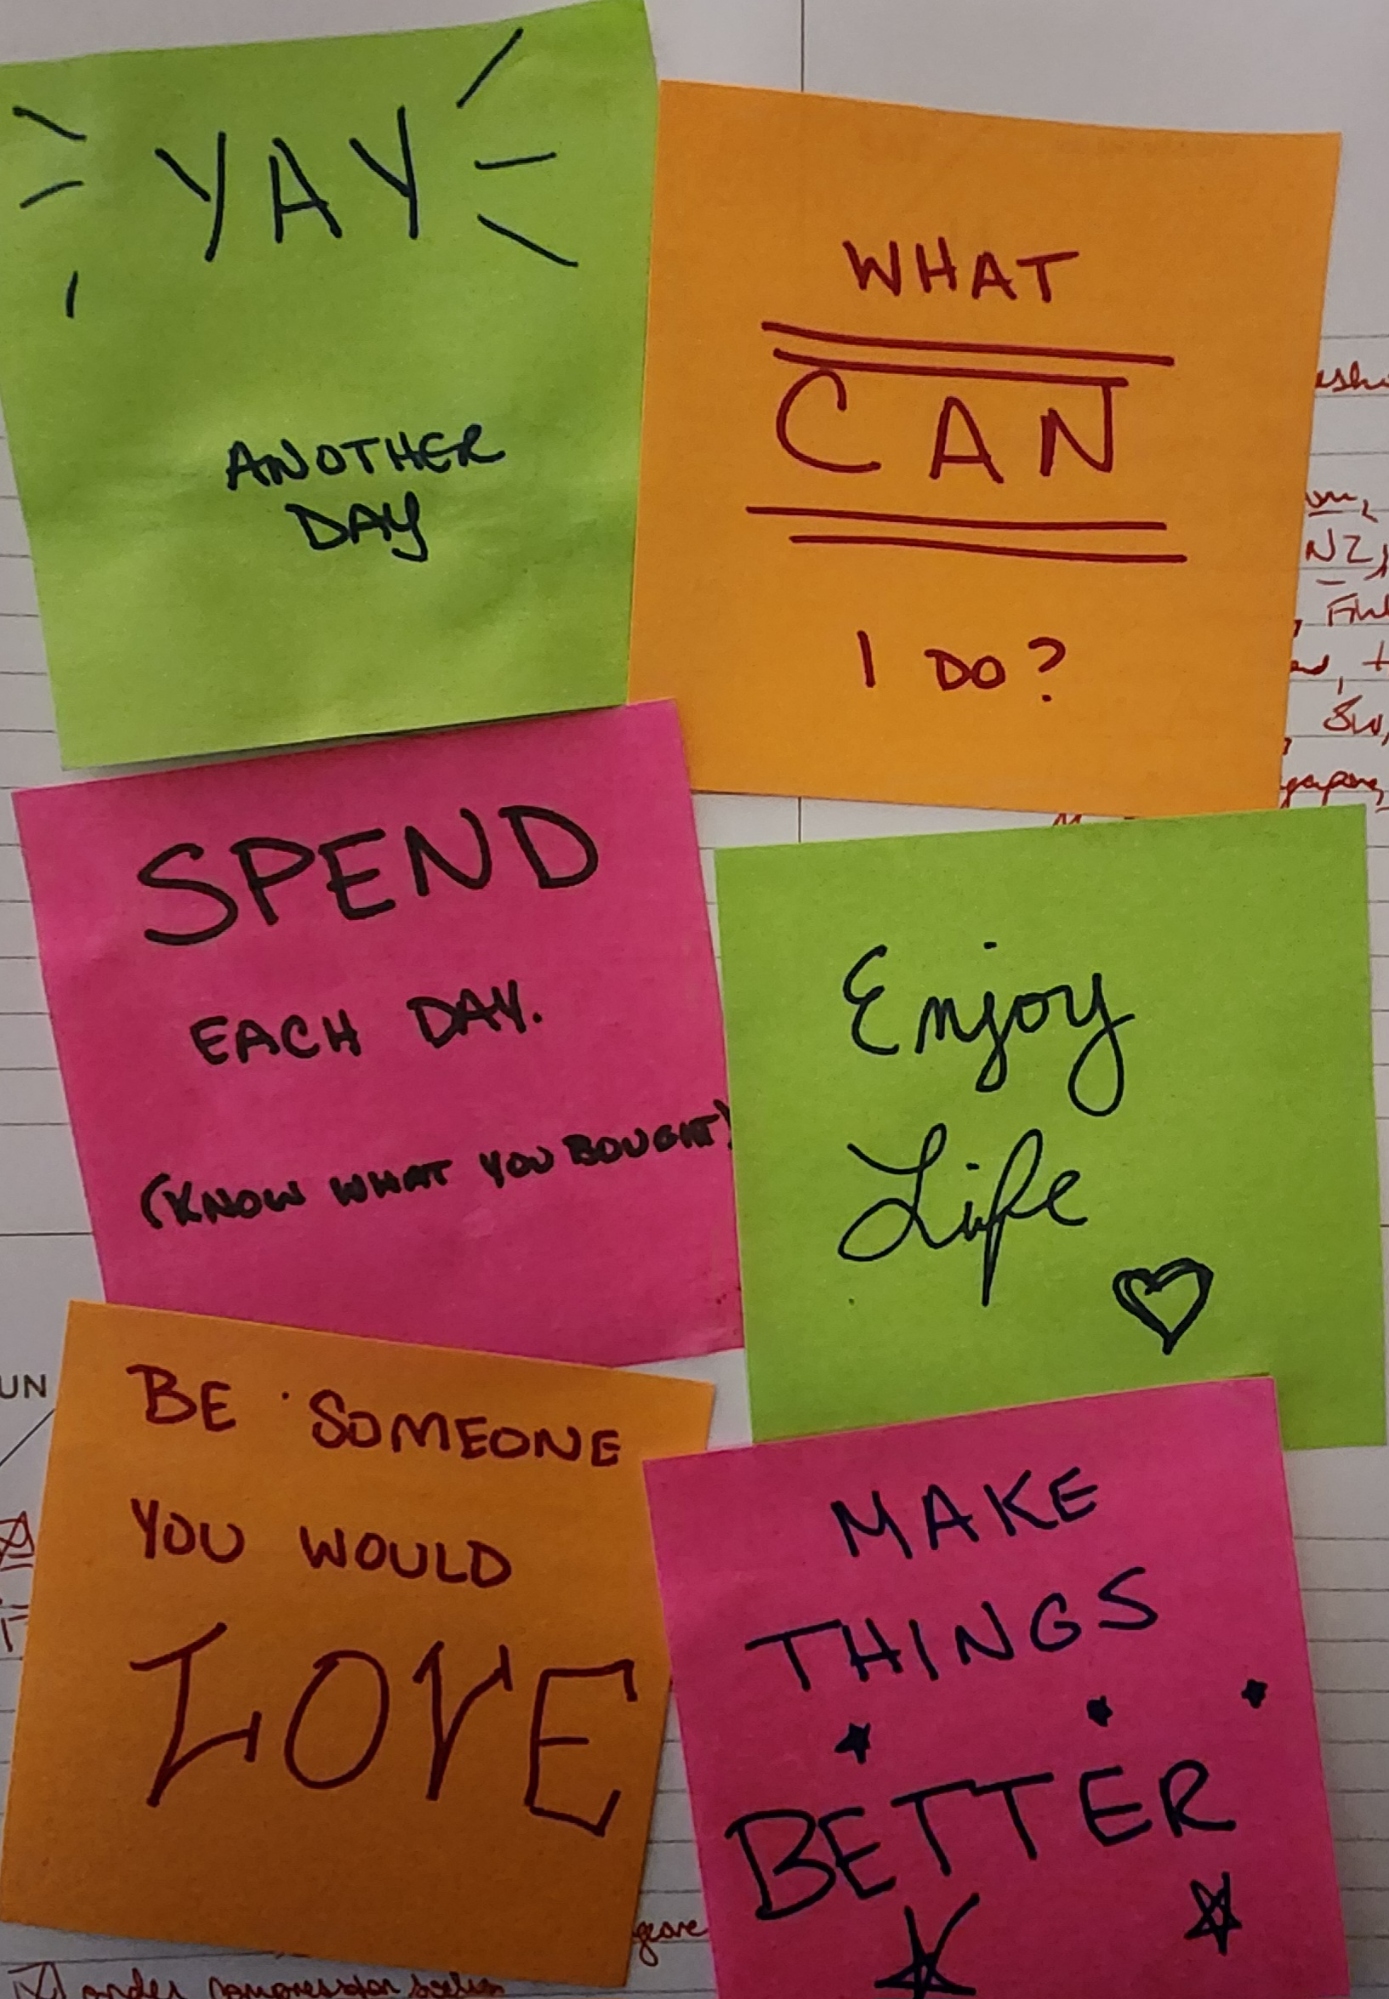 YAY
ANOTHER
DAY
WHAT
CAN
I DO?
SPEND
EACH DAY.
(KNOW WHAT YOU BOUGHT)
Enjoy
Life
BE SOMEONE
YOU WOULD
LOVE
MAKE
THINGS
BETTER
NZ,
UN
order compression socks